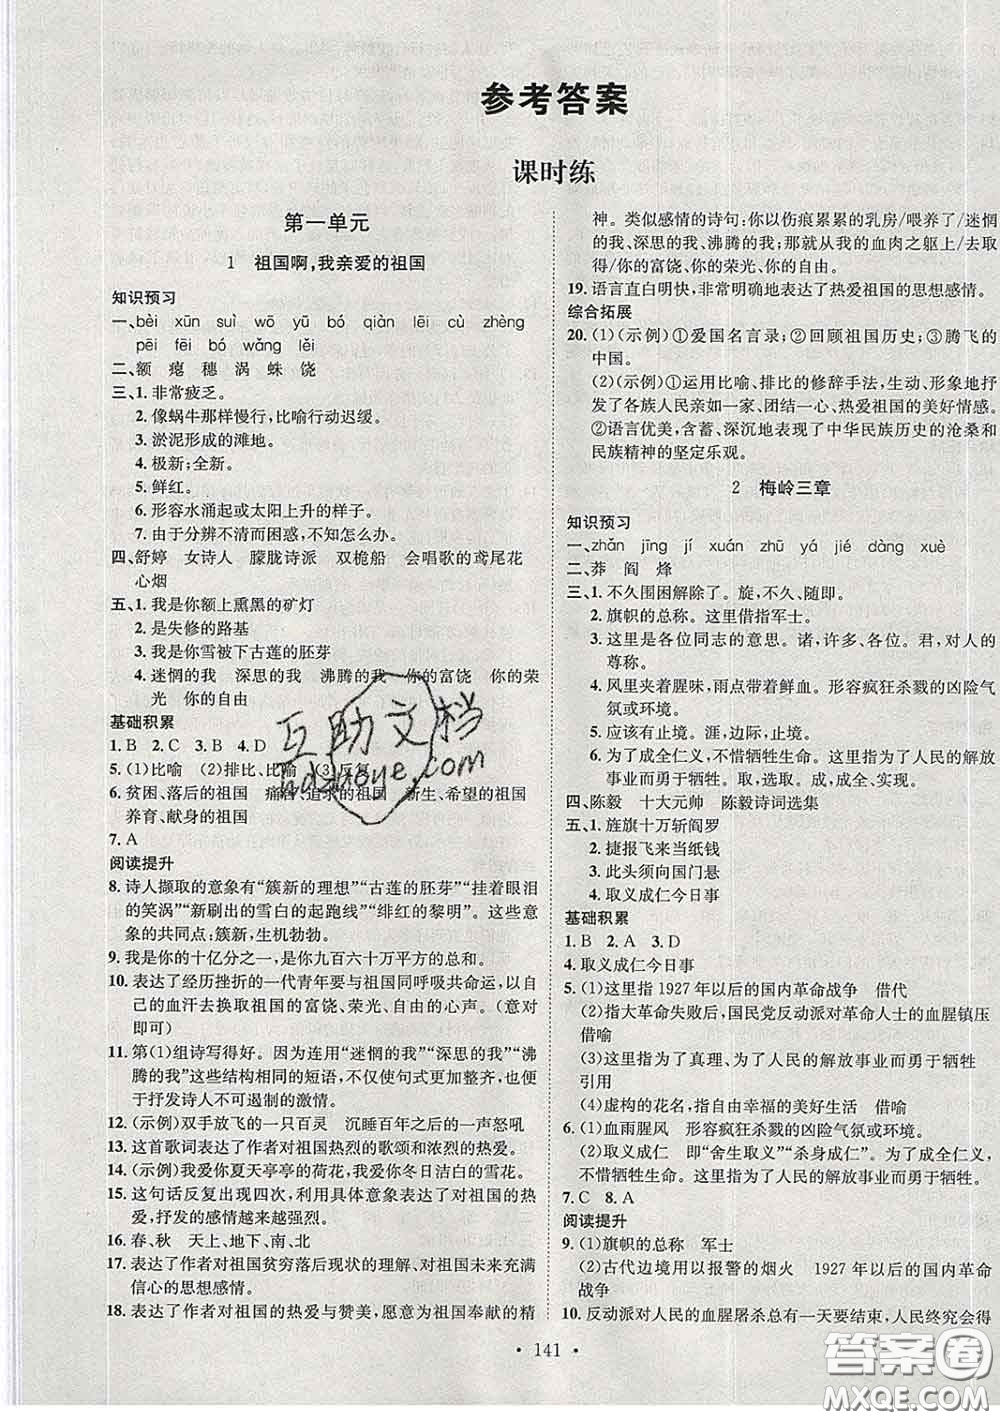 参考答案
课时练
第一单元
1　祖国啊,我亲爱的祖国
知识预习
一、bèi　xūn　suì　wō　yū　bó　qiàn　lēi　cù　zhèng
pēi　fēi　bó　wǎng　lěi
二、额　瘪　穗　涡　蛛　饶
三、1. 非常疲乏。
2. 像蜗牛那样慢行,比喻行动迟缓。
3. 淤泥形成的滩地。
4. 极新;全新。
5. 鲜红。
6. 形容水涌起或太阳上升的样子。
7. 由于分辨不清而困惑,不知怎么办。
四、舒婷　女诗人　朦胧诗派　双桅船　会唱歌的鸢尾花
心烟
五、1. 我是你额上熏黑的矿灯
2. 是失修的路基
3. 我是你雪被下古莲的胚芽
4. 迷惘的我　深思的我　沸腾的我　你的富饶　你的荣
光　你的自由
基础积累
1. B　2. C　3. B　4. D
5. (1)比喻　(2)排比、比喻　(3)反复
6. 贫困、落后的祖国　痛苦、追求的祖国　新生、希望的祖国
养育、献身的祖国
7. A
阅读提升
8. 诗人撷取的意象有“簇新的理想”“古莲的胚芽”“挂着眼泪
的笑涡”“新刷出的雪白的起跑线”“绯红的黎明”。这些意
象的共同点:簇新,生机勃勃。
9. 我是你的十亿分之一,是你九百六十万平方的总和。
10. 表达了经历挫折的一代青年要与祖国同呼吸共命运,以自
己的血汗去换取祖国的富饶、荣光、自由的心声。(意对
即可)
11. 第(1)组诗写得好。因为连用“迷惘的我”“深思的我”“沸
腾的我”这些结构相同的短语,不仅使句式更加整齐,而且便
于抒发诗人不可遏制的激情。
12. (示例)双手放飞的一只百灵　沉睡百年之后的一声怒吼
13. 这首歌词表达了作者对祖国热烈的歌颂和浓烈的热爱。
14. (示例)我爱你夏天亭亭的荷花,我爱你冬日洁白的雪花。
15. 这句话反复出现四次,利用具体意象表达了对祖国的热
爱,抒发的感情越来越强烈。
16. 春、秋　天上、地下、南、北
17. 表达了作者对祖国贫穷落后现状的理解、对祖国未来充满
信心的思想感情。
18. 表达了作者对祖国的热爱与赞美,愿意为祖国奉献的精
神。类似感情的诗句:你以伤痕累累的乳房/喂养了/迷惘
的我、深思的我、沸腾的我;那就从我的血肉之躯上/去取
得/你的富饶、你的荣光、你的自由。
19. 语言直白明快,非常明确地表达了热爱祖国的思想感情。
综合拓展
20. (1)(示例)①爱国名言录;②回顾祖国历史;③腾飞的
中国。
(2)(示例)①运用比喻、排比的修辞手法,生动、形象地抒
发了各族人民亲如一家、团结一心、热爱祖国的美好情感。
②语言优美,含蓄、深沉地表现了中华民族历史的沧桑和
民族精神的坚定乐观。
2　梅岭三章
知识预习
一、zhǎn　jīng　jí　xuán　zhū　yá　jié　dàng　xuè
二、莽　阎　烽
三、1. 不久围困解除了。旋,不久、随即。
2. 旗帜的总称。这里借指军士。
3. 这里是各位同志的意思。诸,许多、各位。君,对人的
尊称。
4. 风里夹着腥味,雨点带着鲜血。形容疯狂杀戮的凶险气
氛或环境。
5. 应该有止境。涯,边际,止境。
6. 为了成全仁义,不惜牺牲生命。这里是为了人民的解放
事业而勇于牺牲。取,选取。成,成全、实现。
四、陈毅　十大元帅　陈毅诗词选集
五、1. 旌旗十万斩阎罗
2. 捷报飞来当纸钱
3. 此头须向国门悬
4. 取义成仁今日事
基础积累
1. B　2. A　3. D
4. 取义成仁今日事
5. (1)这里指 1927 年以后的国内革命战争　借代
(2)指大革命失败后,国民党反动派对革命人士的血腥镇压
借喻
(3)这里指为了真理、为了人民的解放事业而勇于牺牲
引用
(4)虚构的花名,指自由幸福的美好生活　借喻
6. (1)血雨腥风　形容疯狂杀戮的凶险气氛或环境。
(2)取义成仁　即“舍生取义”“杀身成仁”。为了成全仁义,
不惜牺牲生命。这里是为了人民的解放事业而勇于牺牲。
7. C　8. A
阅读提升
9. (1)旗帜的总称　军士
(2)古代边境用以报警的烟火　1927 年以后的国内革命
战争
10. 反动派对人民的血腥屠杀总有一天要结束,人民终究会得
• 141 •
互助文档
hdzuoye.com
答案圈
MXQE.COM